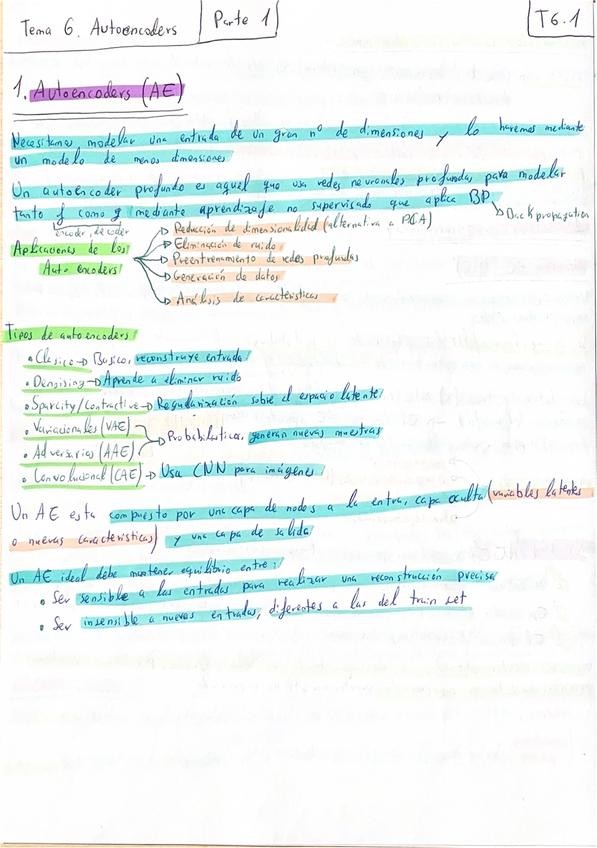 Tema 6. Autoencoders
Parte 1
T6.1
1. Autoencoders (AE)
Necesitamos modelar una entrada de un gran nº de dimensiones y lo haremos mediante
un modelo de menos dimensiones
Un autoencoder profundo es aquel que usa redes neuronales profundas para modelar
tanto f como g mediante aprendizaje no supervisado que aplica BP
Backpropagation
encoder, decoder
Aplicaciones de los
Auto encoders
Reducción de dimensionalidad (alternativa a PCA)
Eliminación de ruido
Preentrenamiento de redes profundas
Generación de datos
Análisis de características
Tipos de autoencoders
• Clásico → Básico, reconstruye entrada
• Denoising → Aprende a eliminar ruido
• Sparcity/Contractive → Regularización sobre el espacio latente
• Variacionales (VAE)
• Adversarios (AAE)
Probabilísticos, generan nuevas muestras
• Convolucional (CAE) → Usa CNN para imágenes
Un AE esta compuesto por una capa de nodos a la entra, capa oculta (variables latentes
o nuevas características) y una capa de salida
Un AE ideal debe mantener equilibrio entre:
• Ser sensible a las entradas para realizar una reconstrucción precisa
• Ser insensible a nuevas entradas, diferentes a las del train set